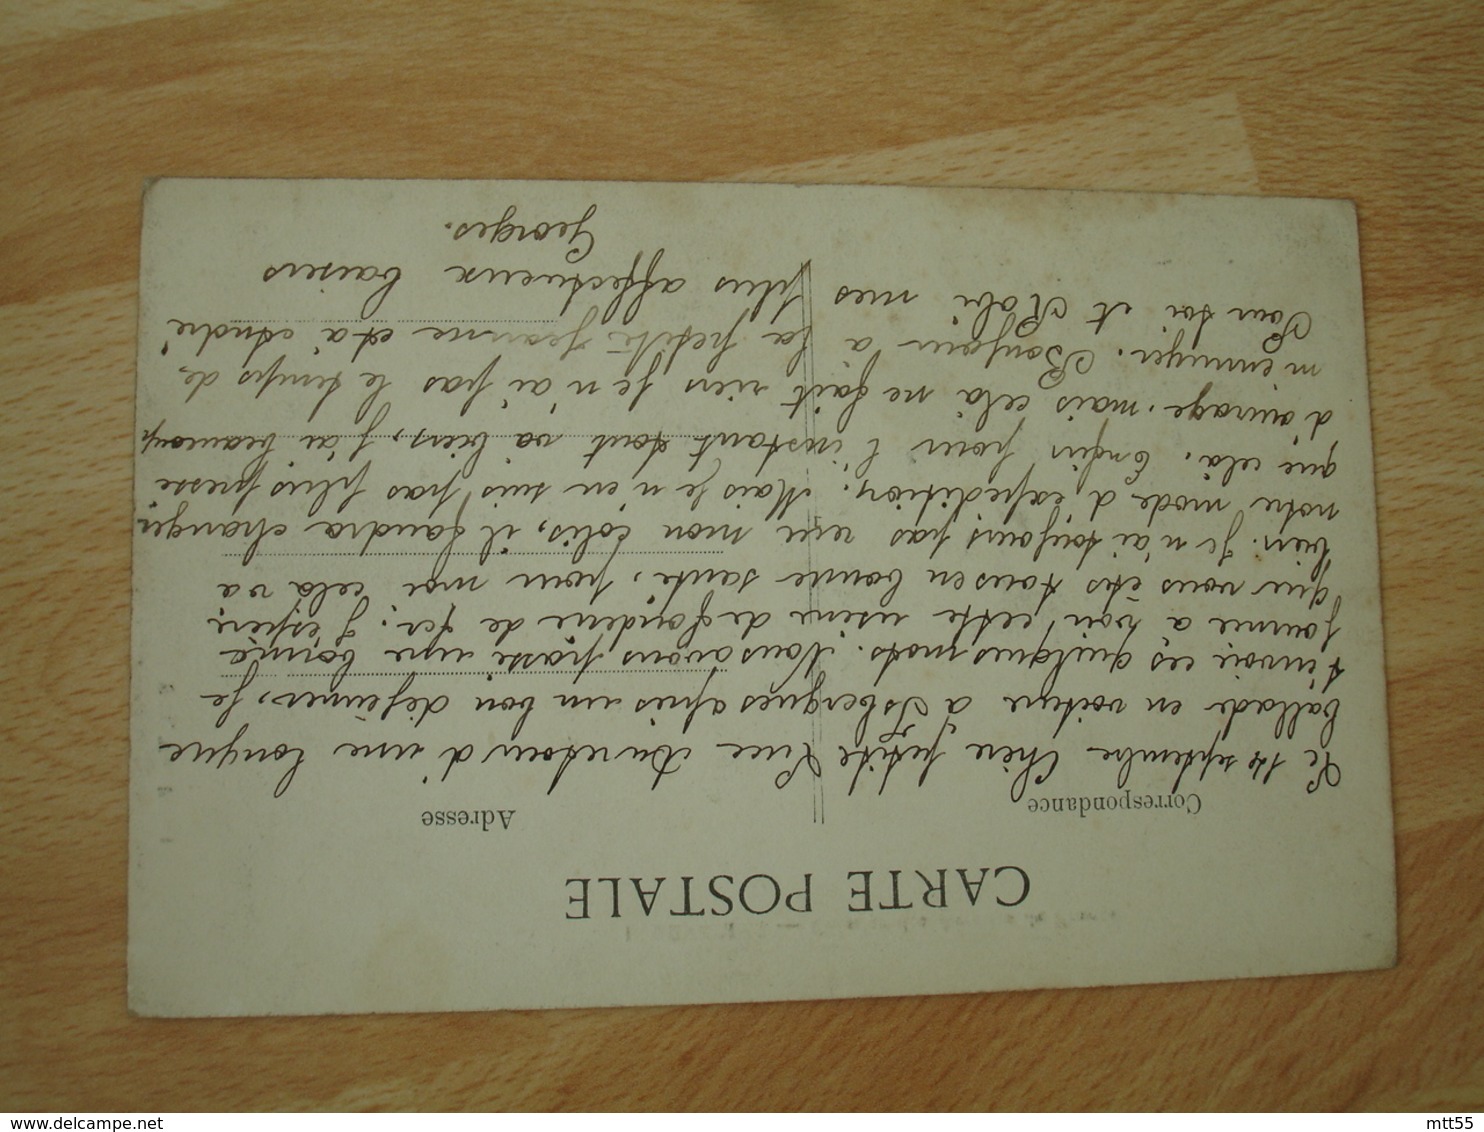 CARTE POSTALE
Correspondance
Adresse
Le 1er septembre Chère petite Luce Au retour d'une longue
ballade en voiture à Isbergues après un bon déjeuner, je
t'envoie ces quelques mots. Nous avons passé une bonne
journée à voir cette usine de fonderie de fer. J'espère
que vous êtes tous en bonne santé, pour moi cela va
bien. Je n'ai toujours pas reçu mon colis, il faudra changer
notre mode d'expédition. Mais je n'en suis pas plus pressé
que cela. Enfin pour l'instant tout va bien, j'ai beaucoup
d'ouvrage. mais cela ne fait rien je n'ai pas le temps de
m'ennuyer. Bonjour à la petite Jeanne et à André
Pour toi et Robi mes plus affectueux baisers
Georges.
delcampe.net
mtt55